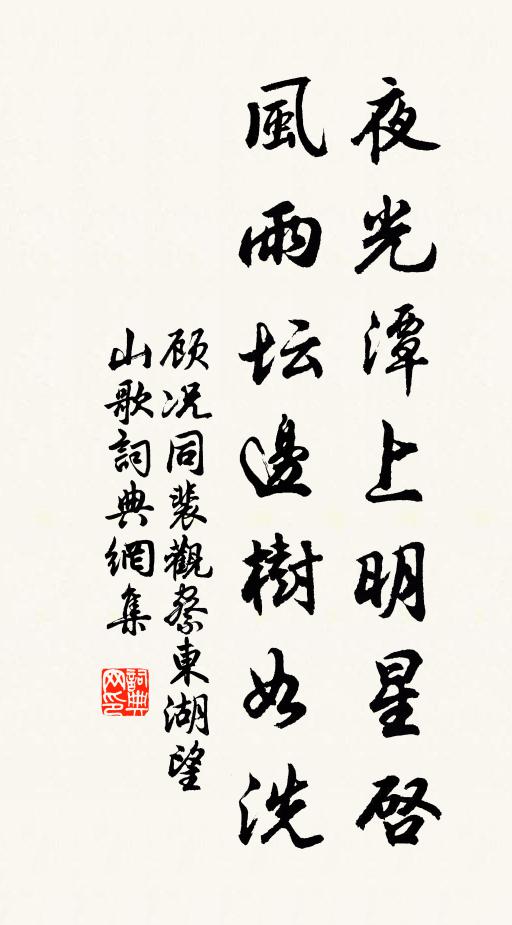 夜光潭上明星啓
風雨坛邊樹如洗
顾况同裴觀察東湖望
山歌詞典網集
詞典网印